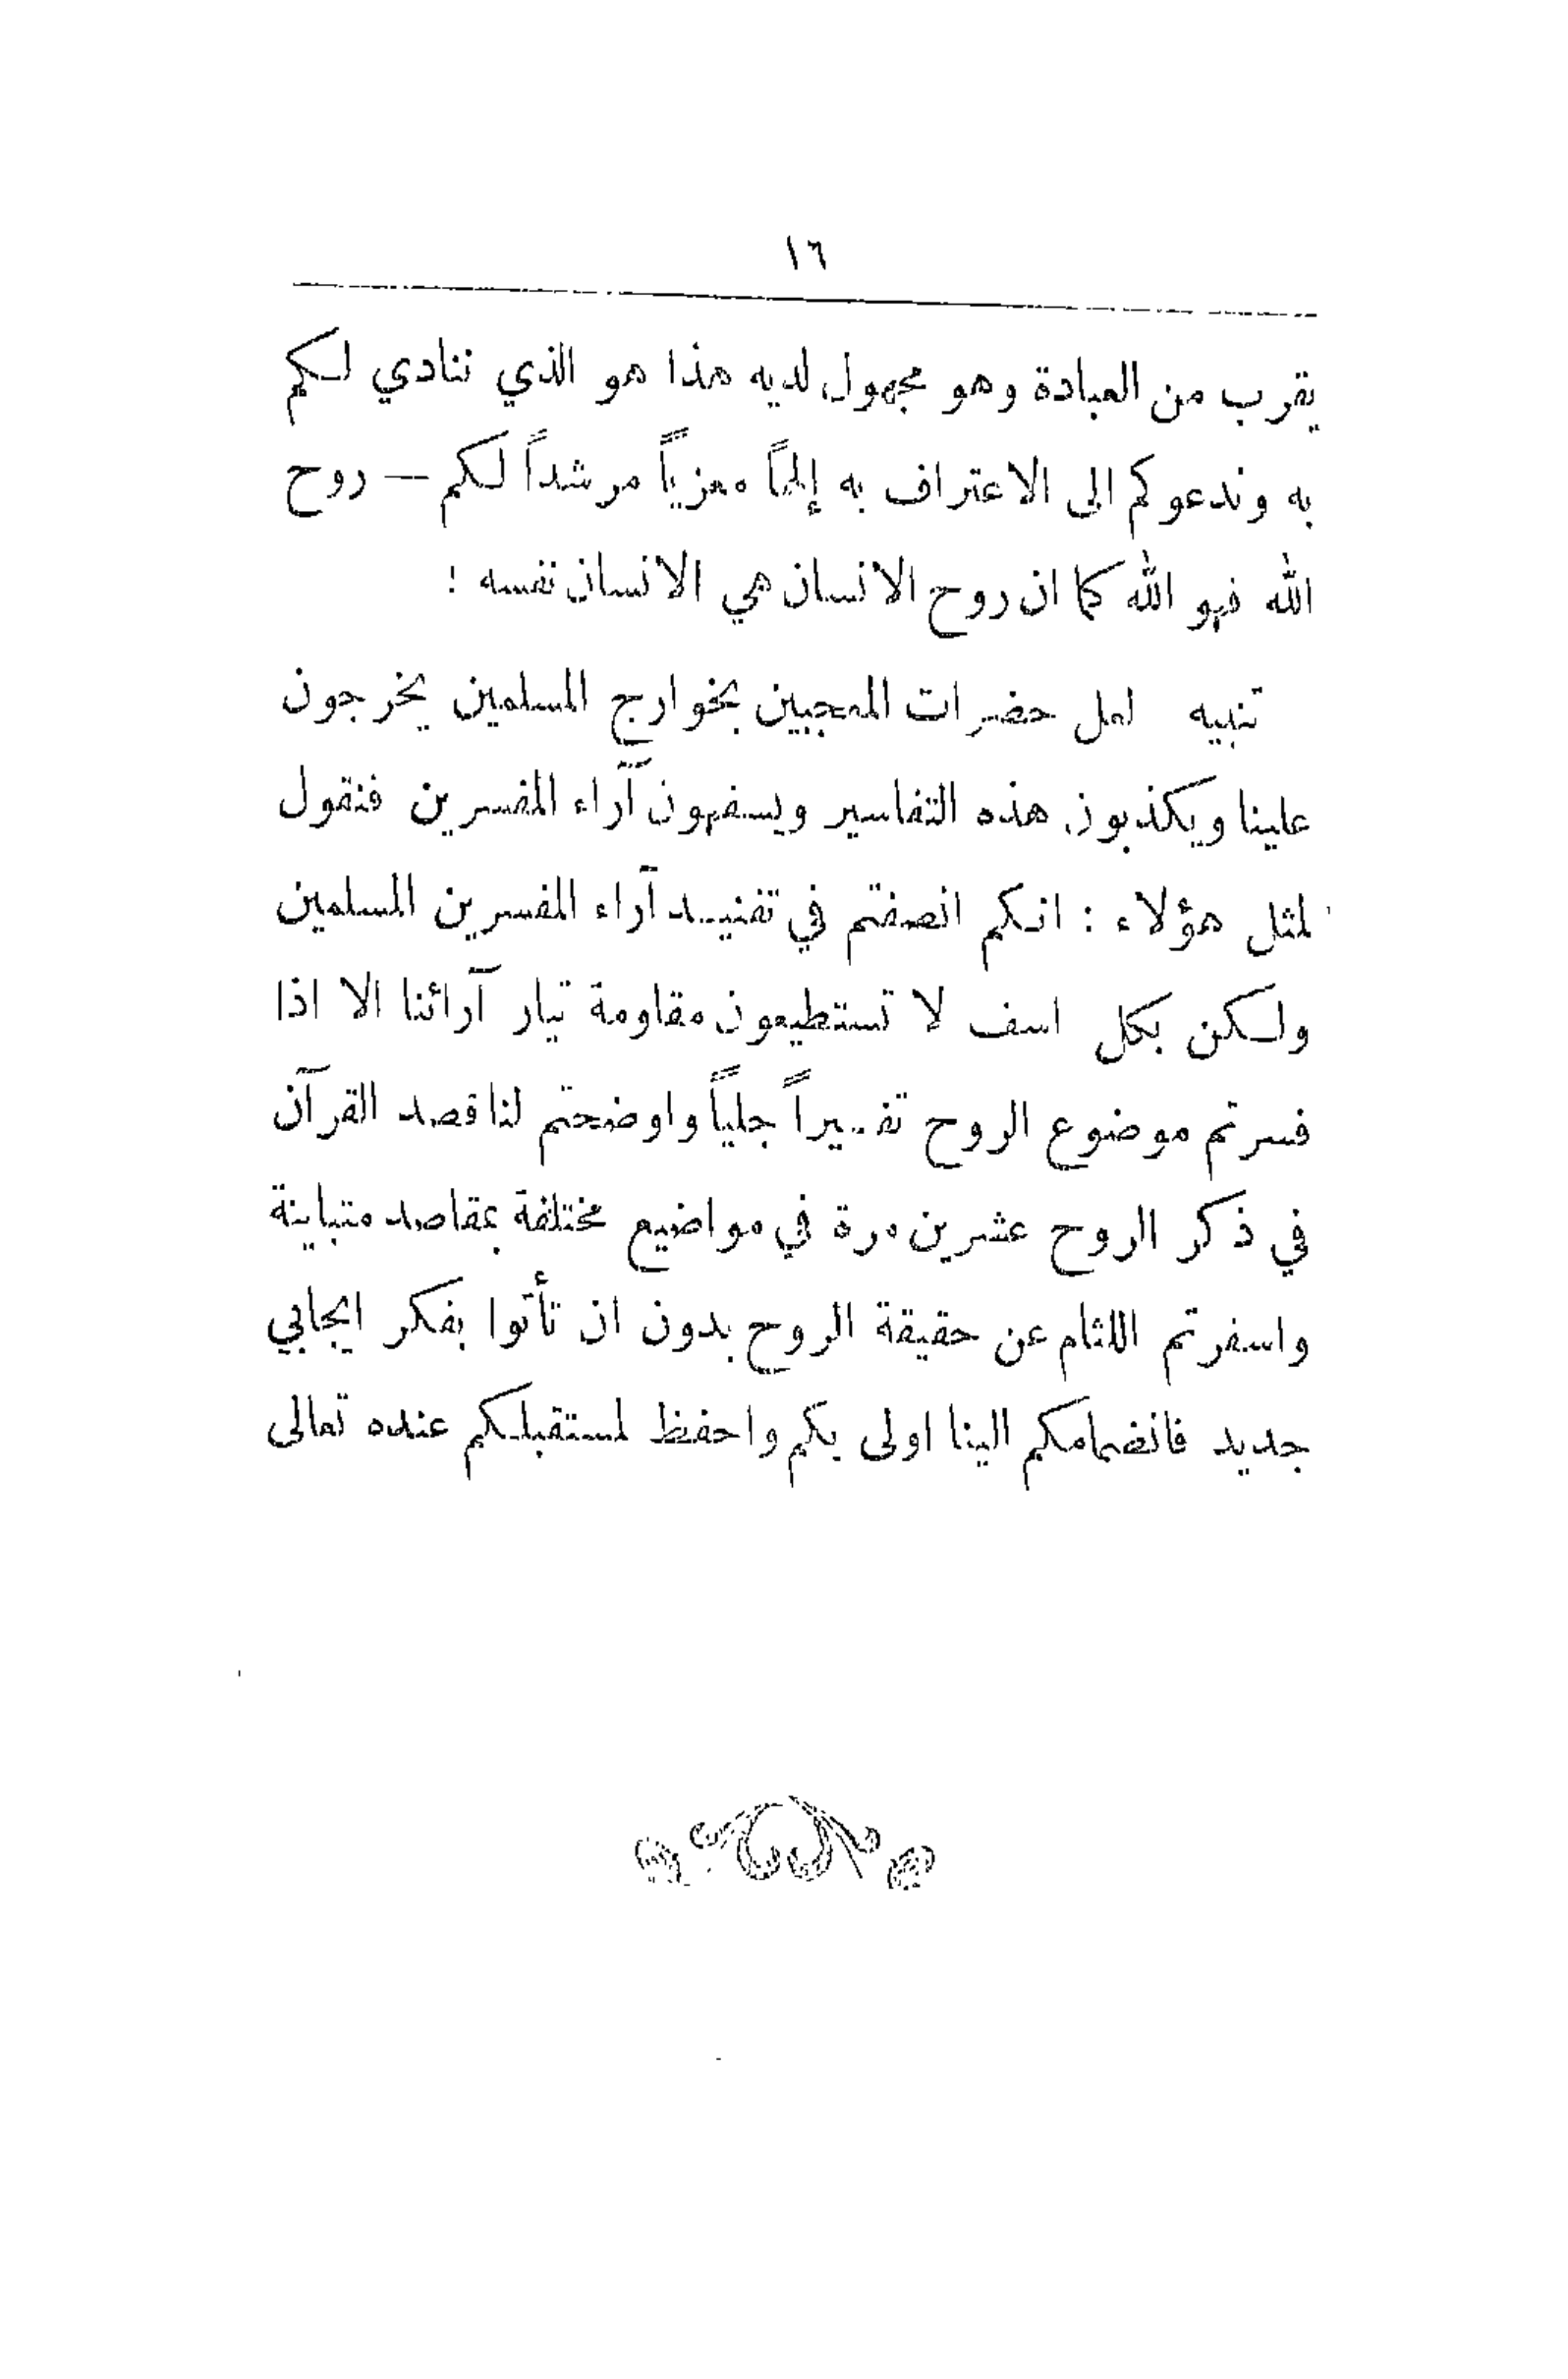 ١٦
يقرب من العبادة وهو مجهول لديه هذا هو الذي ننادي لكم
به وندعوكم الى الاعتراف به إلهاً معزياً مرشداً لكم — روح
الله فهو الله كما ان روح الانسان هي الانسان نفسه !
تنبيه لعل حضرات المعجبين بخوارج المسلمين يخرجون
علينا ويكذبون هذه التفاسير ويسفهون آراء المفسرين فنقول
لمثل هؤلاء : انكم انصفتم في تفنيد آراء المفسرين المسلمين
ولكن بكل اسف لا تستطيعون مقاومة تيار آرائنا الا اذا
فسرتم موضوع الروح تفسيراً جلياً واوضحتم لنا قصد القرآن
في ذكر الروح عشرين مرة في مواضيع مختلفة بمقاصد متباينة
واسفرتم اللثام عن حقيقة الروح بدون ان تأتوا بفكر ايجابي
جديد فانضمامكم الينا اولى بكم واحفظ لمستقبلكم عنده تعالى